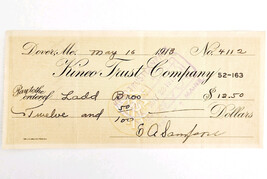 Dover, Me. May 16 1918 No. 4112
Kineo Trust Company 52-163
Pay to the order of Ladd Bros $ 12.50
Twelve and 50/100 Dollars
E A Sampson